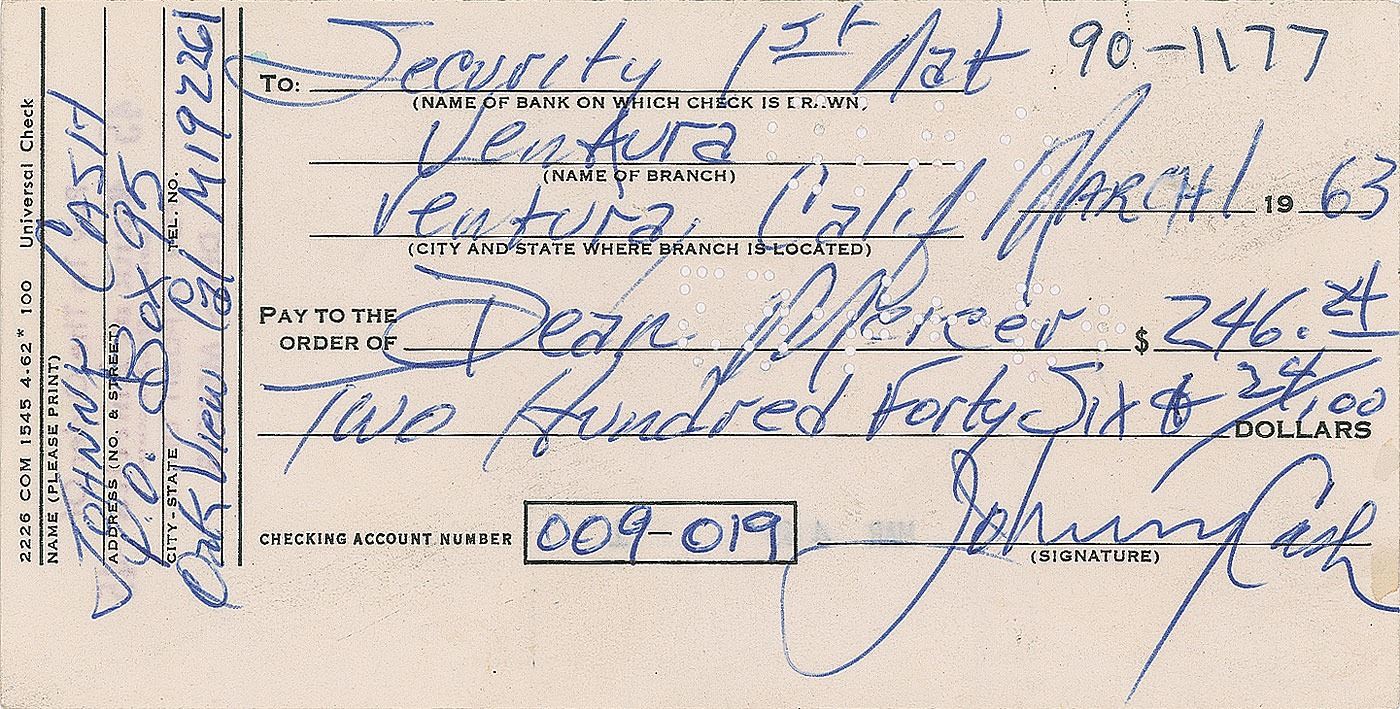 Security 1st Nat 90-1177
TO:
(NAME OF BANK ON WHICH CHECK IS DRAWN)
Ventura
(NAME OF BRANCH)
Ventura, Calif MARCH 1 19 63
(CITY AND STATE WHERE BRANCH IS LOCATED)
PAY TO THE
ORDER OF Dean Mercer $ 246.24
Two Hundred Forty Six & 24/100 DOLLARS
CHECKING ACCOUNT NUMBER 009-019 Johnny Cash
(SIGNATURE)
2226 COM 1545 4-62* 100 Universal Check
NAME (PLEASE PRINT)
JOHNNY CASH
ADDRESS (NO. & STREET)
P.O. Box 95
CITY - STATE TEL. NO.
Oak View Cal M192261